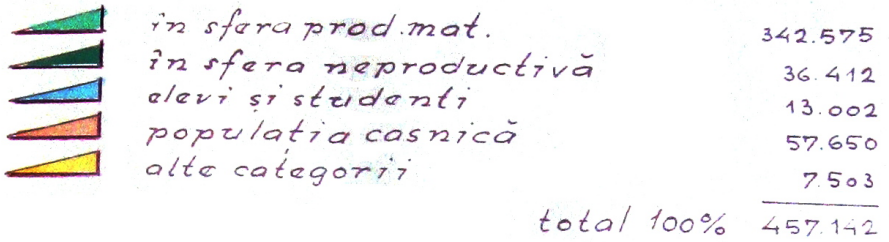 în sfera prod.mat. 342.575
în sfera neproductivă 36.412
elevi și studenti 13.002
populația casnică 57.650
alte categorii 7.503
total 100% 457.142